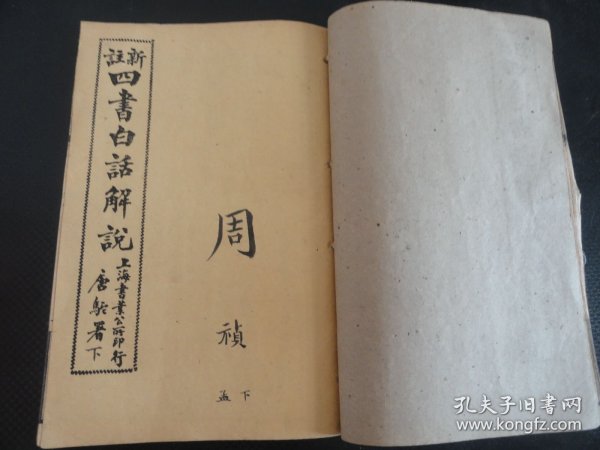 新註
四書白話解說
上海書業公所印行
唐駝署
下
周
禎
下
孟
孔夫子旧书网
www.kongfz.com